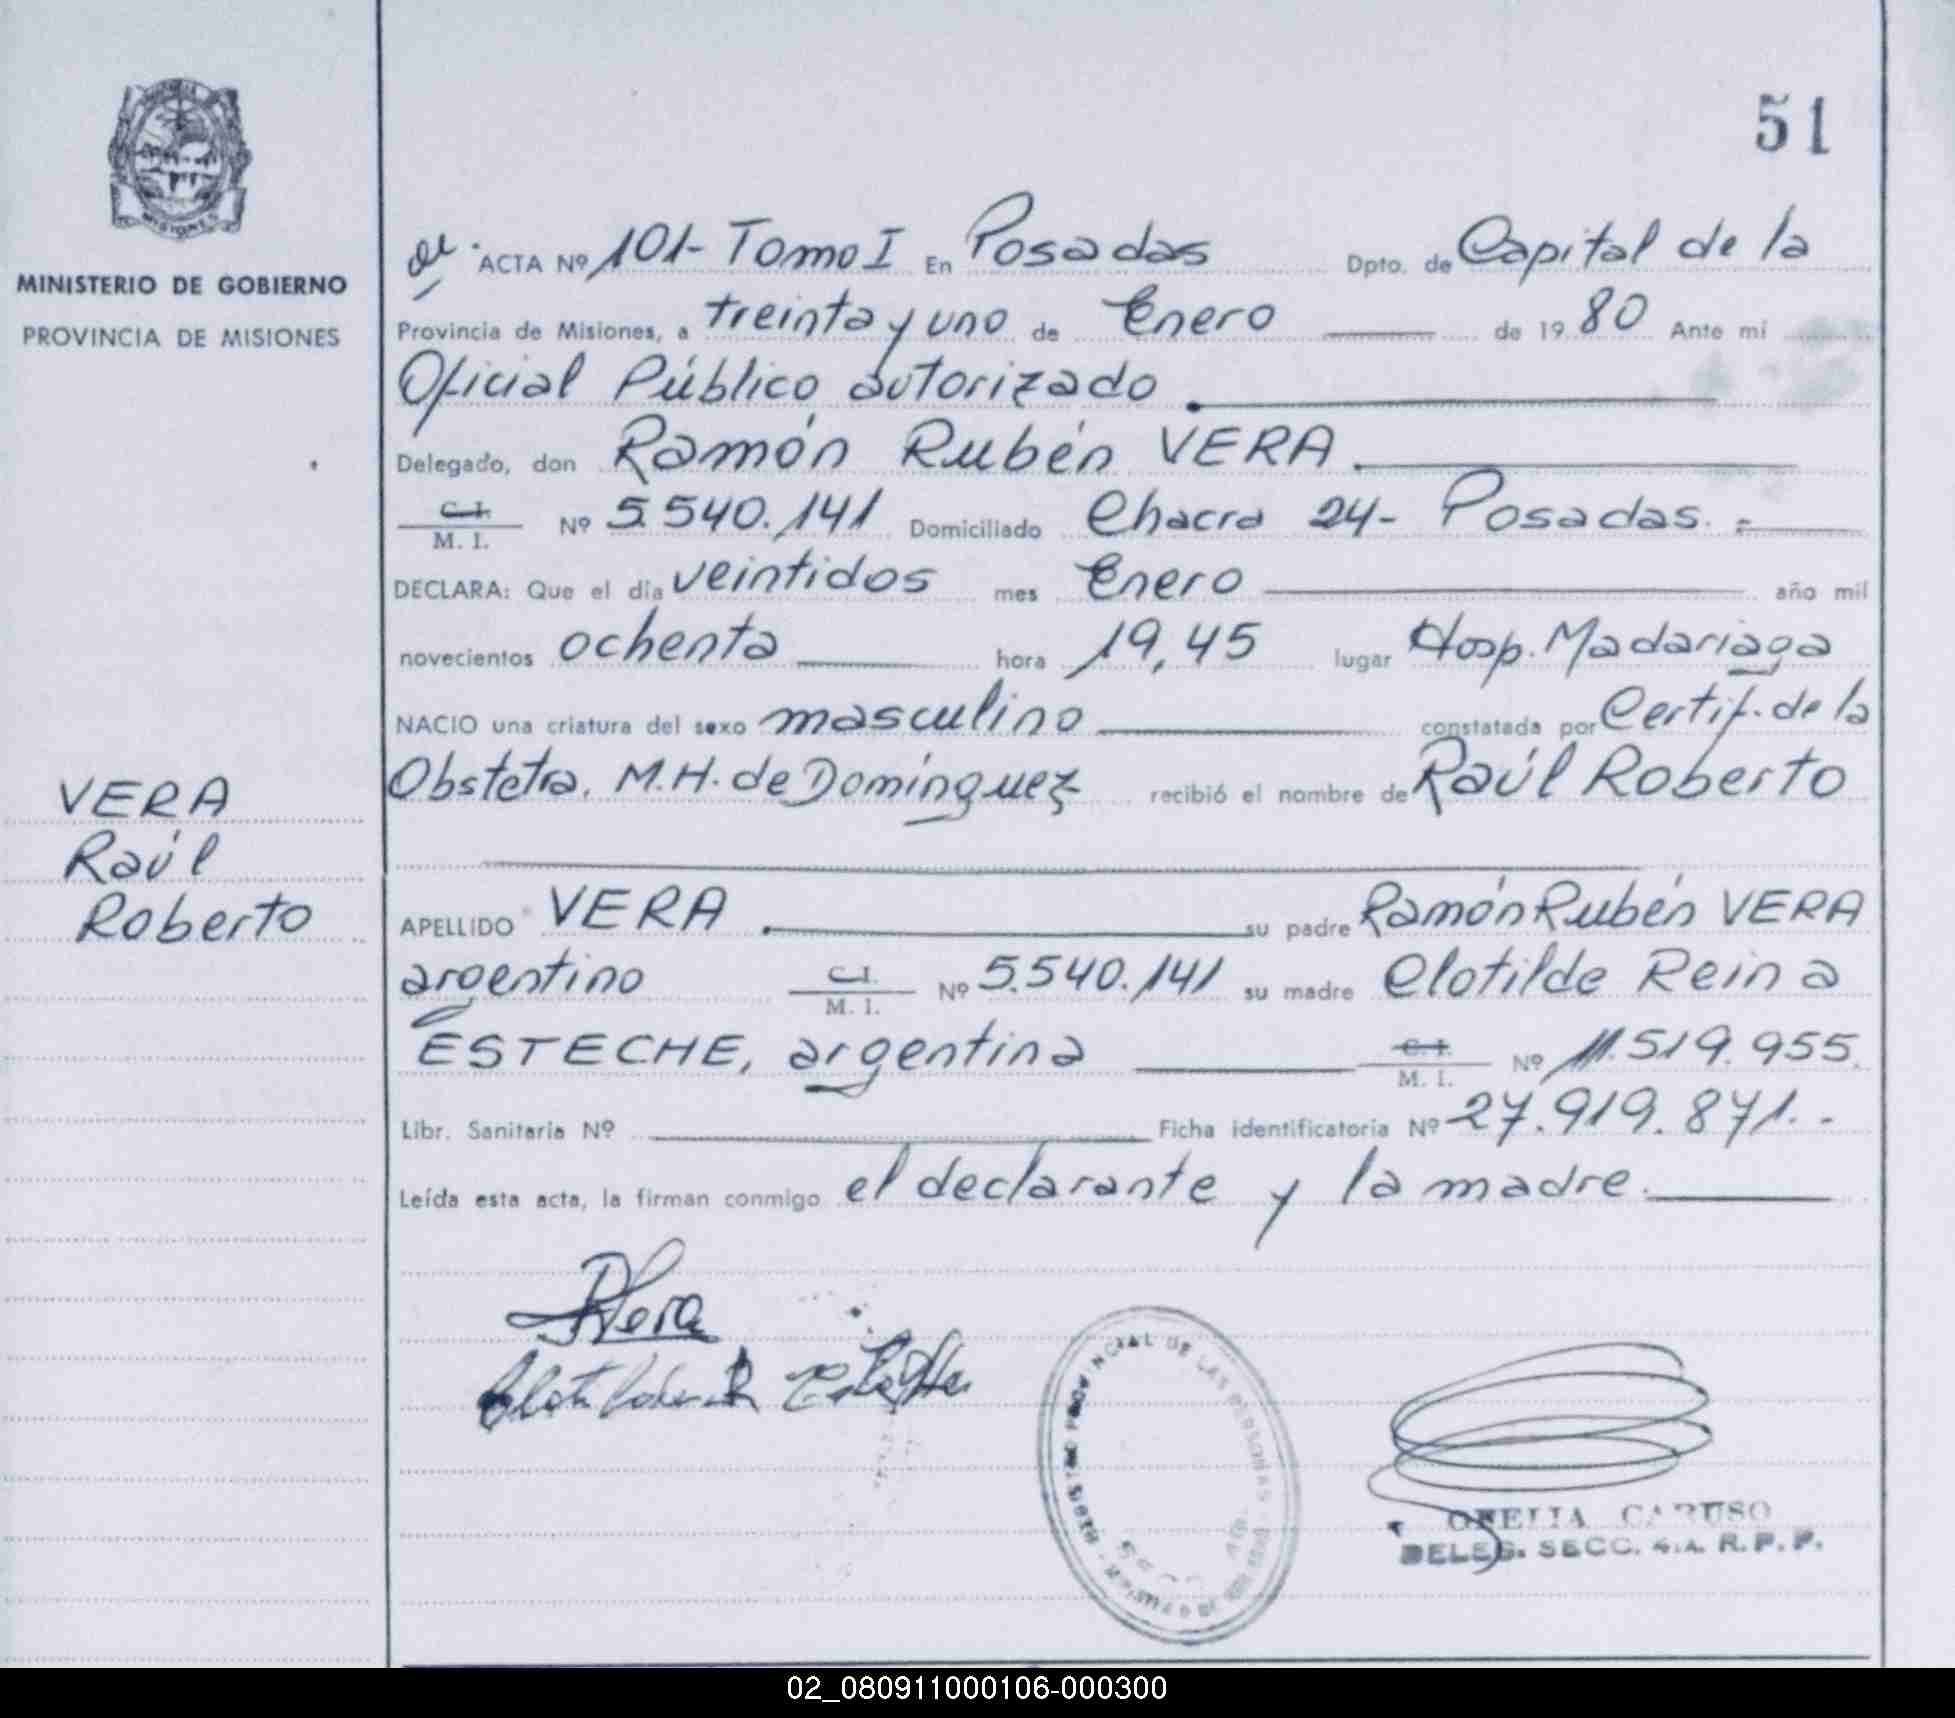 51
MINISTERIO DE GOBIERNO
PROVINCIA DE MISIONES
ACTA Nº 101- Tomo I En Posadas Dpto. de Capital de la
Provincia de Misiones, a treinta y uno de Enero de 19 80 Ante mí
Oficial Público autorizado
Delegado, don Ramón Rubén VERA
C. I.
M. I. Nº 5.540.141 Domiciliado Chacra 24- Posadas.
DECLARA: Que el día veintidos mes Enero año mil
novecientos ochenta hora 19,45 lugar Hosp. Madariaga
NACIO una criatura del sexo masculino constatada por Certif. de la
Obstetra. M.H. de Domínguez recibió el nombre de Raúl Roberto
VERA
Raúl
Roberto
APELLIDO VERA su padre Ramón Rubén VERA
argentino C. I.
M. I. Nº 5.540.141 su madre Clotilde Reina
ESTECHE, argentina C. I.
M. I. Nº 11.519.955.
Libr. Sanitaria Nº Ficha identificatoria Nº 27.919.871.-
Leída esta acta, la firman conmigo el declarante y la madre.
RVera
REGISTRO PROVINCIAL DE LAS PERSONAS
OFELIA CARUSO
DELEG. SECC. 4.A. R. P. P.
02_080911000106-000300